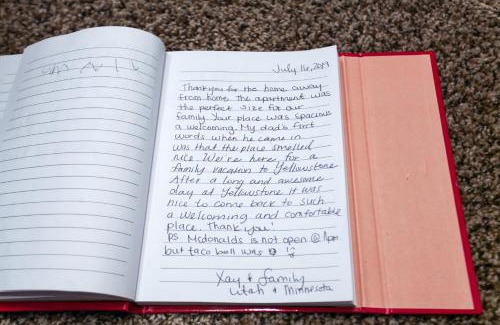 July 16, 2019
Thank you for the home away
from home. The apartment was
the perfect size for our
family. Your place was spacious
& welcoming. My dad's first
words when he came in
was that the place smelled
nice. We're here for a
family vacation to Yellowstone.
After a long and awesome
day at Yellowstone it was
nice to come back to such
a welcoming and comfortable
place. Thank you!
PS. Mcdonalds is not open @
but taco bell was
Xay & family
Utah & Minnesota